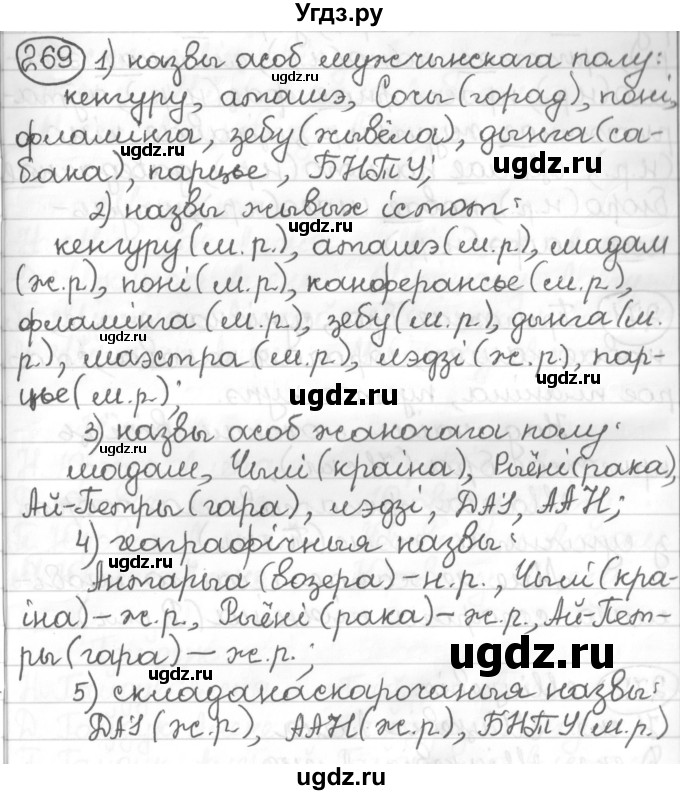 Угдз.ру
269 1) назвы асоб мужчынскага полу:
ugdz.ru
кенгуру, аташэ, Сочы (горад), поні,
фламінга, зебу (жывёла), дынга (са-
ugdz.ru
ugdz.ru
бака), парцье, БНТУ;
2) назвы жывых істот:
ugdz.ru
кенгуру (м.р.), аташэ (м.р.), мадам
(ж.р), поні (м.р.), канферансье (м.р.),
ugdz.ru
фламінга (м.р.), зебу (м.р), дынга (м.
р.), маэстра (м.р.), лэдзі (ж.р.), пар-
ugdz.ru
ugdz.ru
цье (м.р);
3) назвы асоб жаночага полу:
мадам, Чылі (краіна), Рыёні (рака),
ugdz.ru
Ай-Петры (гара), лэдзі, ДАІ, ААН;
4) геаграфічныя назвы:
ugdz.ru
Антарыа (возера) – н.р., Чылі (кра-
іна) – ж.р., Рыёні (рака) – ж.р., Ай-Пет-
ugdz.ru
ugdz.ru
ры (гара) – ж.р.;
5) складанаскарочаныя назвы:
ugdz.ru
ДАІ (ж.р), ААН (ж.р.), БНТУ (м.р.)
ugdz.ru